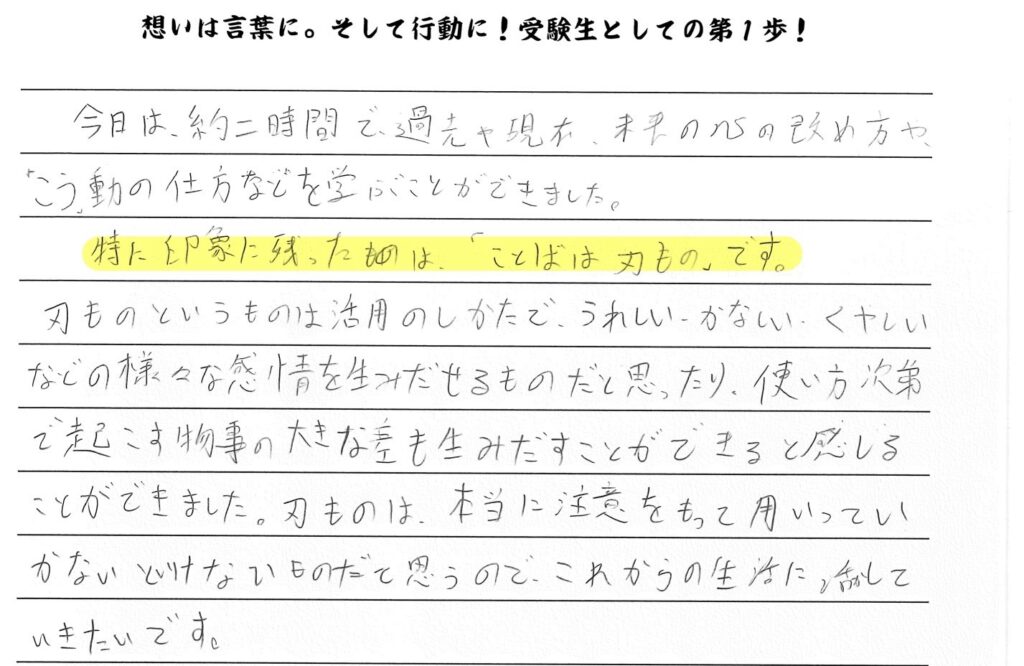 想いは言葉に。そして行動に！受験生としての第１歩！
今日は、約二時間で、過去や現在、未来の心の改め方や、
「こう」動の仕方などを学ぶことができました。
特に印象に残ったものは、「ことばは刃もの」です。
刃ものというものは活用のしかたで、うれしい・かなしい・くやしい
などの様々な感情を生みだせるものだと思ったり、使い方次第
で起こす物事の大きな差も生みだすことができると感じる
ことができました。刃ものは、本当に注意をもって用いってい
かないといけないものだと思うので、これからの生活に活かして
いきたいです。